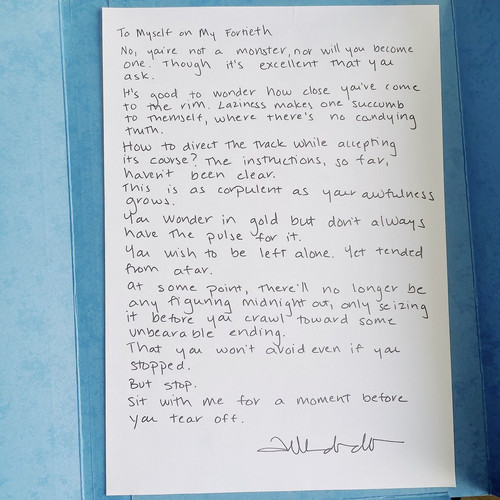 To Myself on My Fortieth
No, you're not a monster, nor will you become
one. Though it's excellent that you
ask.
It's good to wonder how close you've come
to the rim. Laziness makes one succumb
to themself, where there's no candying
truth.
How to direct the track while accepting
its course? The instructions, so far,
haven't been clear.
This is as corpulent as your awfulness
grows.
You wonder in gold but don't always
have the pulse for it.
You wish to be left alone. Yet tended
from afar.
At some point, there'll no longer be
any figuring midnight out, only seizing
it before you crawl toward some
unbearable ending.
That you won't avoid even if you
stopped.
But stop.
Sit with me for a moment before
you tear off.